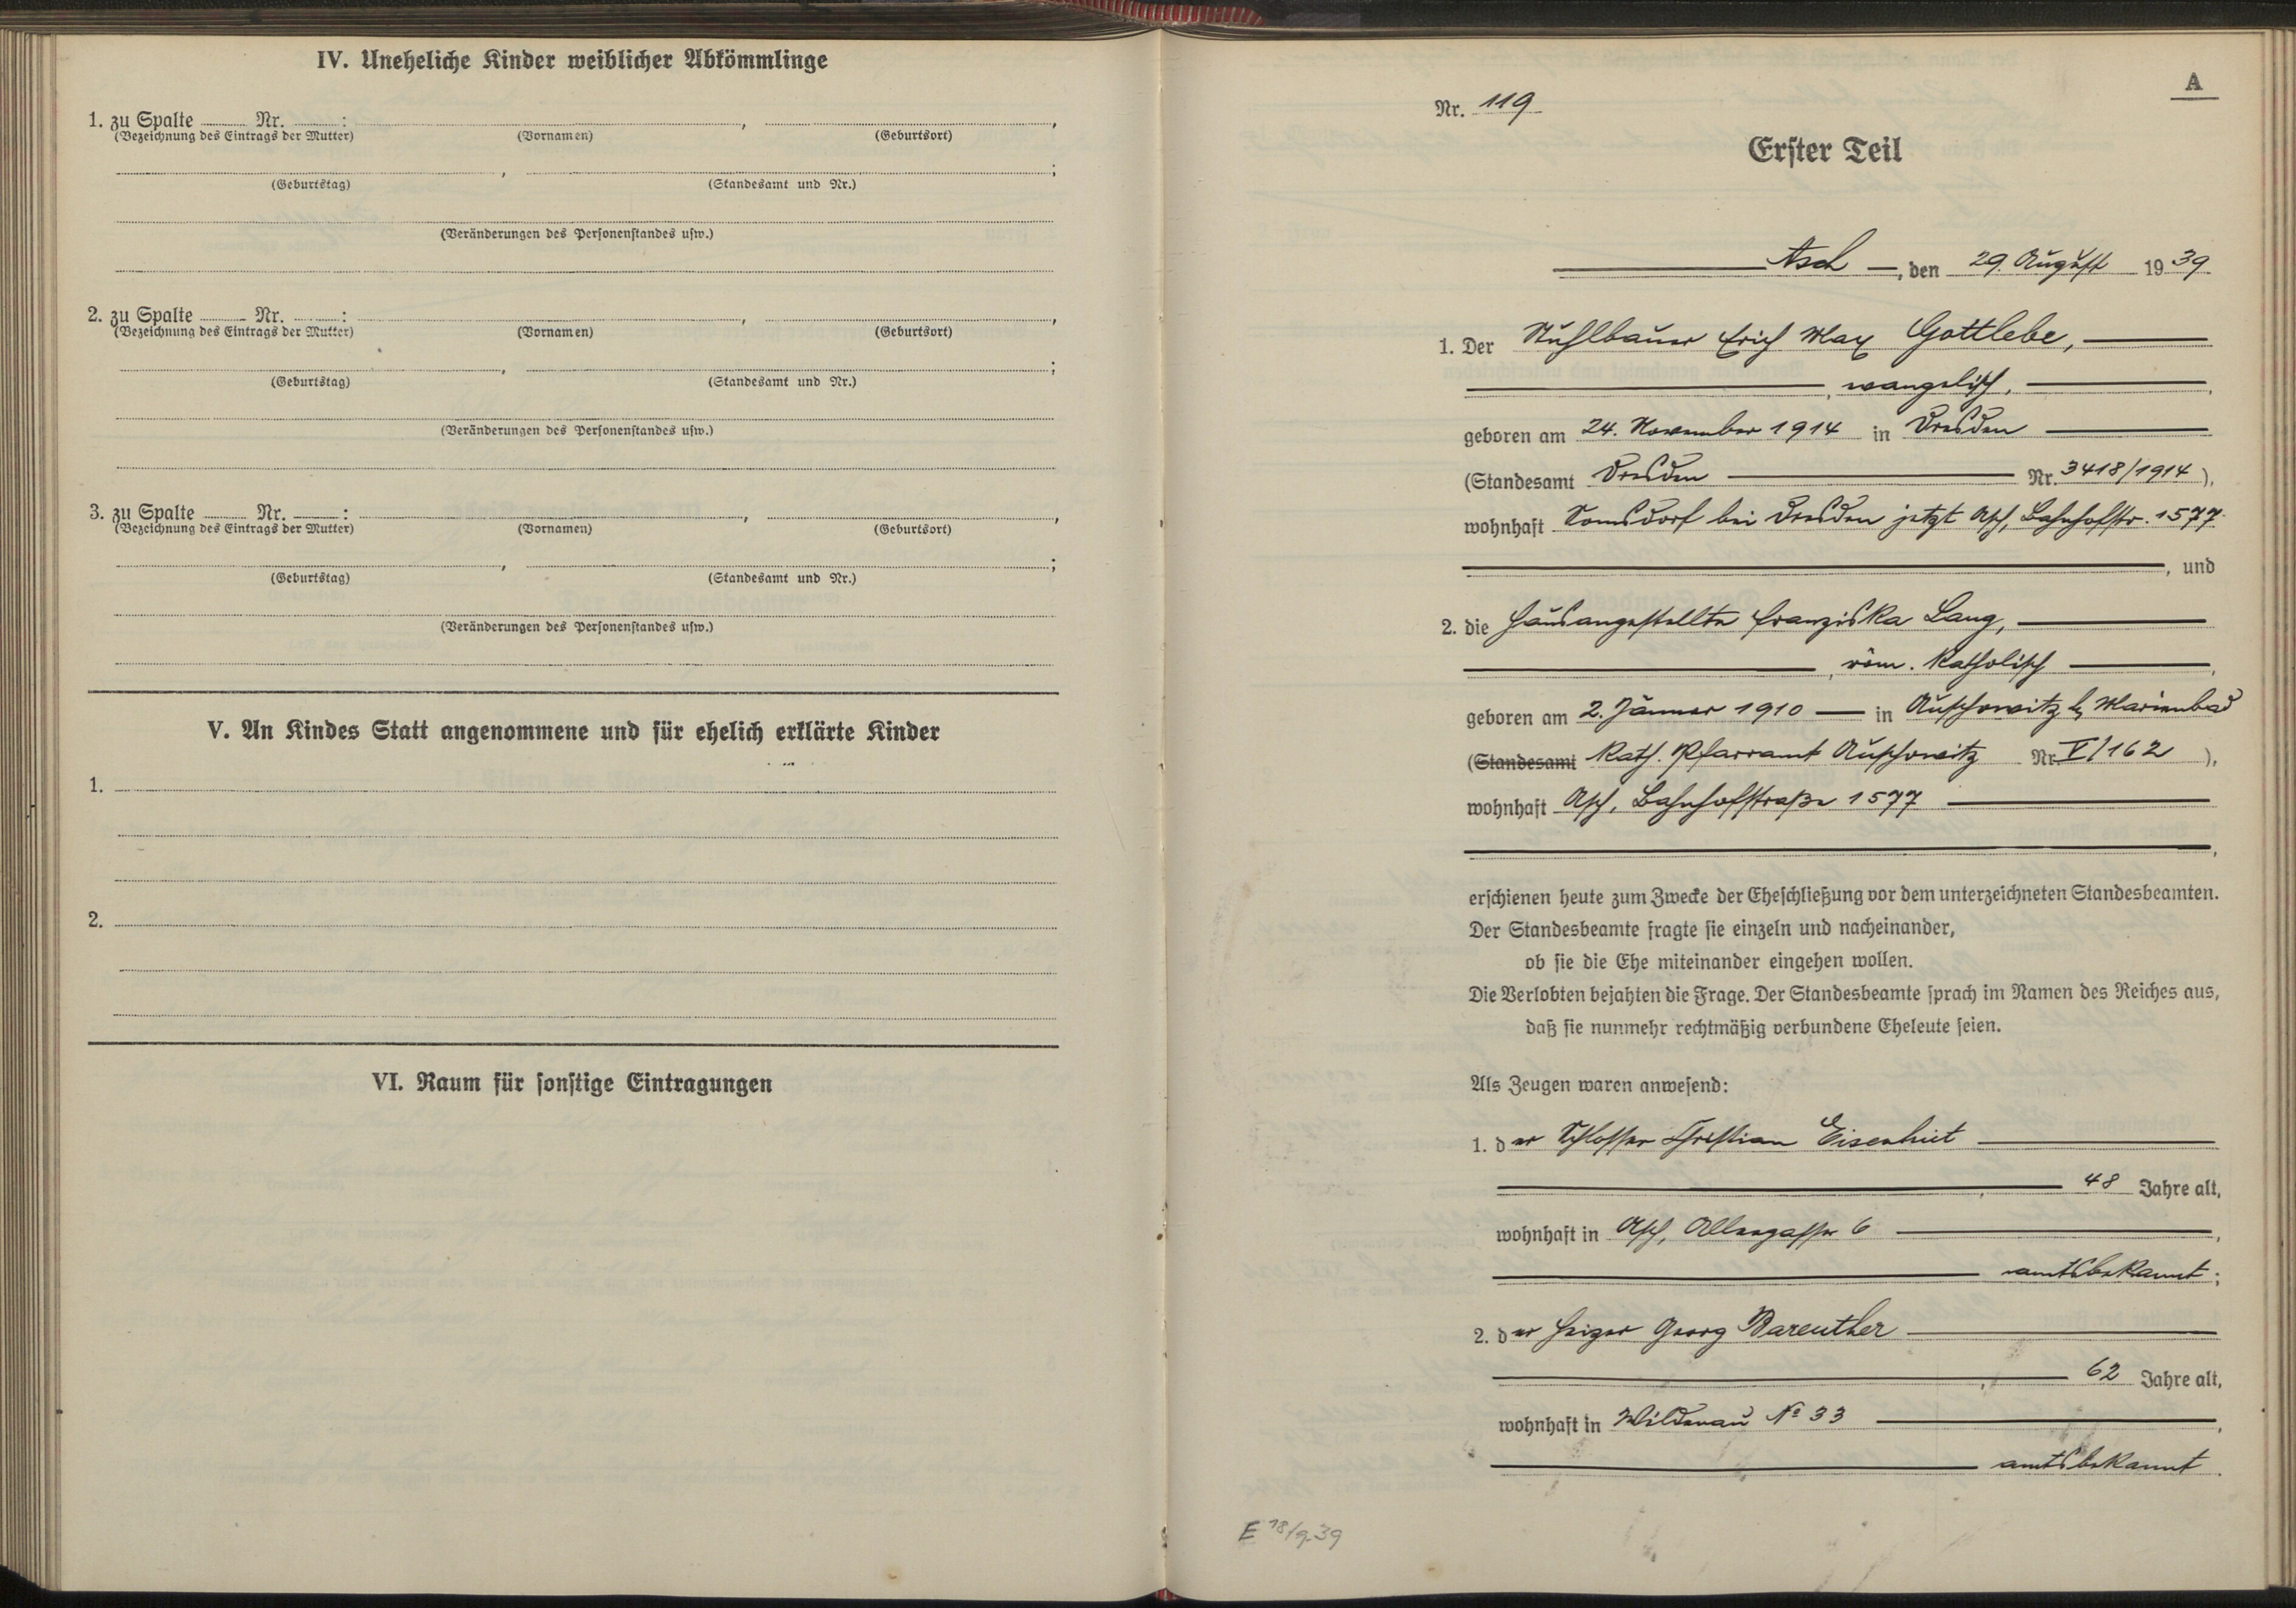 IV. Uneheliche Kinder weiblicher Abkömmlinge
1. zu Spalte Nr. : , ,
(Bezeichnung des Eintrags der Mutter) (Vornamen) (Geburtsort)
, ;
(Geburtstag) (Standesamt und Nr.)
(Veränderungen des Personenstandes usw.)
2. zu Spalte Nr. : , ,
(Bezeichnung des Eintrags der Mutter) (Vornamen) (Geburtsort)
, ;
(Geburtstag) (Standesamt und Nr.)
(Veränderungen des Personenstandes usw.)
3. zu Spalte Nr. : , ,
(Bezeichnung des Eintrags der Mutter) (Vornamen) (Geburtsort)
, ;
(Geburtstag) (Standesamt und Nr.)
(Veränderungen des Personenstandes usw.)
V. An Kindes Statt angenommene und für ehelich erklärte Kinder
1.
2.
VI. Raum für sonstige Eintragungen
A
Nr. 119
Erster Teil
Asch, den 29. August 1939
1. Der Stuhlbauer Erich Max Gottlebe,
, evangelisch,
geboren am 24. November 1914 in Dresden
(Standesamt Dresden Nr. 3418/1914),
wohnhaft Somsdorf bei Dresden jetzt Asch, Bahnhofstr. 1577
, und
2. die Hausangestellte Franziska Lang,
, röm. katholisch,
geboren am 2. Jänner 1910 in Auschowitz b. Marienbad
(Standesamt Kath. Pfarramt Auschowitz Nr. V/162),
wohnhaft Asch, Bahnhofstraße 1577
,
erschienen heute zum Zwecke der Eheschließung vor dem unterzeichneten Standesbeamten.
Der Standesbeamte fragte sie einzeln und nacheinander,
ob sie die Ehe miteinander eingehen wollen.
Die Verlobten bejahten die Frage. Der Standesbeamte sprach im Namen des Reiches aus,
daß sie nunmehr rechtmäßig verbundene Eheleute seien.
Als Zeugen waren anwesend:
1. der Schlosser Christian Eisenhut
, 48 Jahre alt,
wohnhaft in Asch, 6,
amtsbekannt;
2. der Heizer Georg Bareuther
, 62 Jahre alt,
wohnhaft in Wildenau № 33,
amtsbekannt.
E 18/9 39